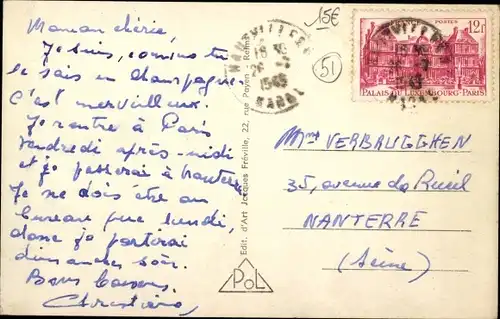 Maman chérie,
Je suis, comme tu
le sais en Champagne.
C'est merveilleux.
Je rentre à Paris
vendredi après-midi
et je passerai à Nanterre
Je ne dois être au
bureau que lundi,
donc je partirai
dimanche soir.
Bons baisers.
Christiane
Edit. d'Art Jacques Fréville, 22, rue Payen - Reims
POL
15€
51
18 30
1948
MAROL
POSTES
12F
PALAIS DU LUXEMBOURG-PARIS
Mme VERBRUGGHEN
35, avenue de Rueil
NANTERRE
(Seine)